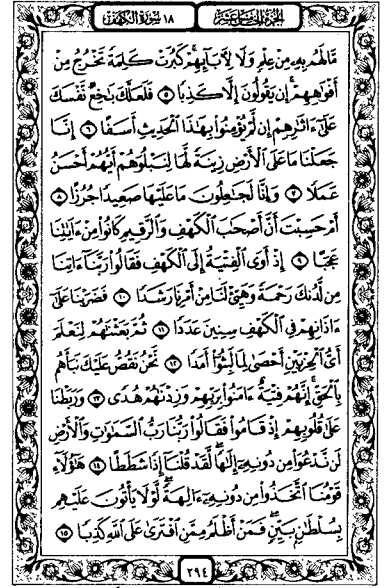 الجزء الخامس عشر ١٨ سورة الكهف
مَّا لَهُم بِهِۦ مِنْ عِلْمٍ وَلَا لِـَٔابَآئِهِمْ ۚ كَبُرَتْ كَلِمَةً تَخْرُجُ مِنْ
أَفْوَٰهِهِمْ ۚ إِن يَقُولُونَ إِلَّا كَذِبًا ٥ فَلَعَلَّكَ بَٰخِعٌ نَّفْسَكَ
عَلَىٰٓ ءَاثَٰرِهِمْ إِن لَّمْ يُؤْمِنُوا۟ بِهَٰذَا ٱلْحَدِيثِ أَسَفًا ٦ إِنَّا
جَعَلْنَا مَا عَلَى ٱلْأَرْضِ زِينَةً لَّهَا لِنَبْلُوَهُمْ أَيُّهُمْ أَحْسَنُ
عَمَلًا ٧ وَإِنَّا لَجَٰعِلُونَ مَا عَلَيْهَا صَعِيدًا جُرُزًا ٨
أَمْ حَسِبْتَ أَنَّ أَصْحَٰبَ ٱلْكَهْفِ وَٱلرَّقِيمِ كَانُوا۟ مِنْ ءَايَٰتِنَا
عَجَبًا ٩ إِذْ أَوَى ٱلْفِتْيَةُ إِلَى ٱلْكَهْفِ فَقَالُوا۟ رَبَّنَآ ءَاتِنَا
مِن لَّدُنكَ رَحْمَةً وَهَيِّئْ لَنَا مِنْ أَمْرِنَا رَشَدًا ١٠ فَضَرَبْنَا عَلَىٰٓ
ءَاذَانِهِمْ فِى ٱلْكَهْفِ سِنِينَ عَدَدًا ١١ ثُمَّ بَعَثْنَٰهُمْ لِنَعْلَمَ
أَىُّ ٱلْحِزْبَيْنِ أَحْصَىٰ لِمَا لَبِثُوٓا۟ أَمَدًا ١٢ نَّحْنُ نَقُصُّ عَلَيْكَ نَبَأَهُم
بِٱلْحَقِّ ۚ إِنَّهُمْ فِتْيَةٌ ءَامَنُوا۟ بِرَبِّهِمْ وَزِدْنَٰهُمْ هُدًى ١٣ وَرَبَطْنَا
عَلَىٰ قُلُوبِهِمْ إِذْ قَامُوا۟ فَقَالُوا۟ رَبُّنَا رَبُّ ٱلسَّمَٰوَٰتِ وَٱلْأَرْضِ
لَن نَّدْعُوَا۟ مِن دُونِهِۦٓ إِلَٰهًا ۖ لَّقَدْ قُلْنَآ إِذًا شَطَطًا ١٤ هَٰٓؤُلَآءِ
قَوْمُنَا ٱتَّخَذُوا۟ مِن دُونِهِۦٓ ءَالِهَةً ۖ لَّوْلَا يَأْتُونَ عَلَيْهِم
بِسُلْطَٰنٍۭ بَيِّنٍ ۖ فَمَنْ أَظْلَمُ مِمَّنِ ٱفْتَرَىٰ عَلَى ٱللَّهِ كَذِبًا ١٥
٢٩٤